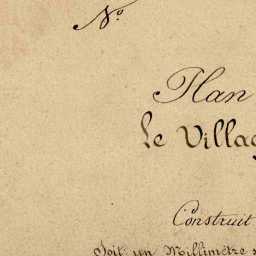 N.º
Plan
le Villag
Construit
Soit un Millimètre